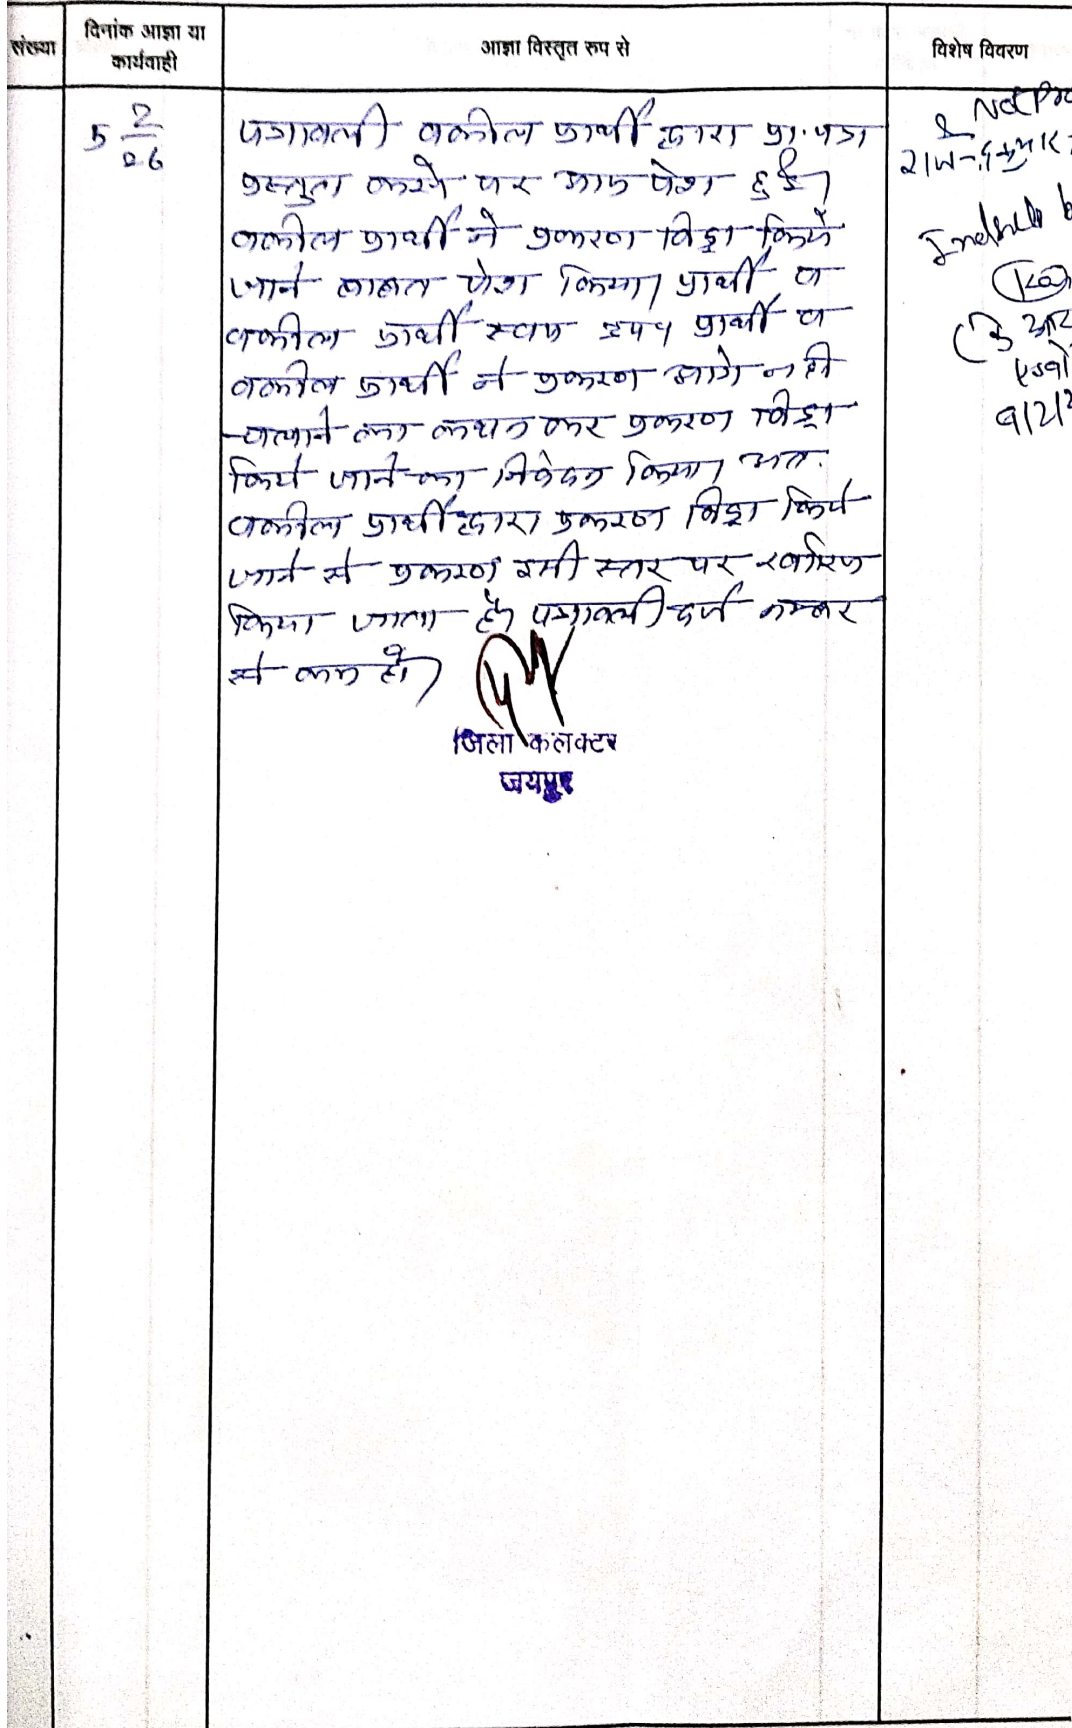 संख्या
दिनांक आज्ञा या
कार्यवाही
आज्ञा विस्तृत रुप से
विशेष विवरण
5 2/26
पत्रावली वकील प्रार्थी द्वारा प्रा. पत्र
प्रस्तुत करने पर आज पेश हुई।
वकील प्रार्थी ने प्रकरण विड्रा किये
जाने बाबत पेश किया। प्रार्थी व
वकील प्रार्थी स्वयं उप. प्रार्थी व
वकील प्रार्थी ने प्रकरण आगे नही
चलाने का कथन कर प्रकरण विड्रा
किये जाने का निवेदन किया। अत:
वकील प्रार्थी द्वारा प्रकरण विड्रा किये
जाने से प्रकरण इसी स्तर पर खारिज
किया जाता है। पत्रावली दर्ज नम्बर
से कम हो।
जिला कलक्टर
जयपुर